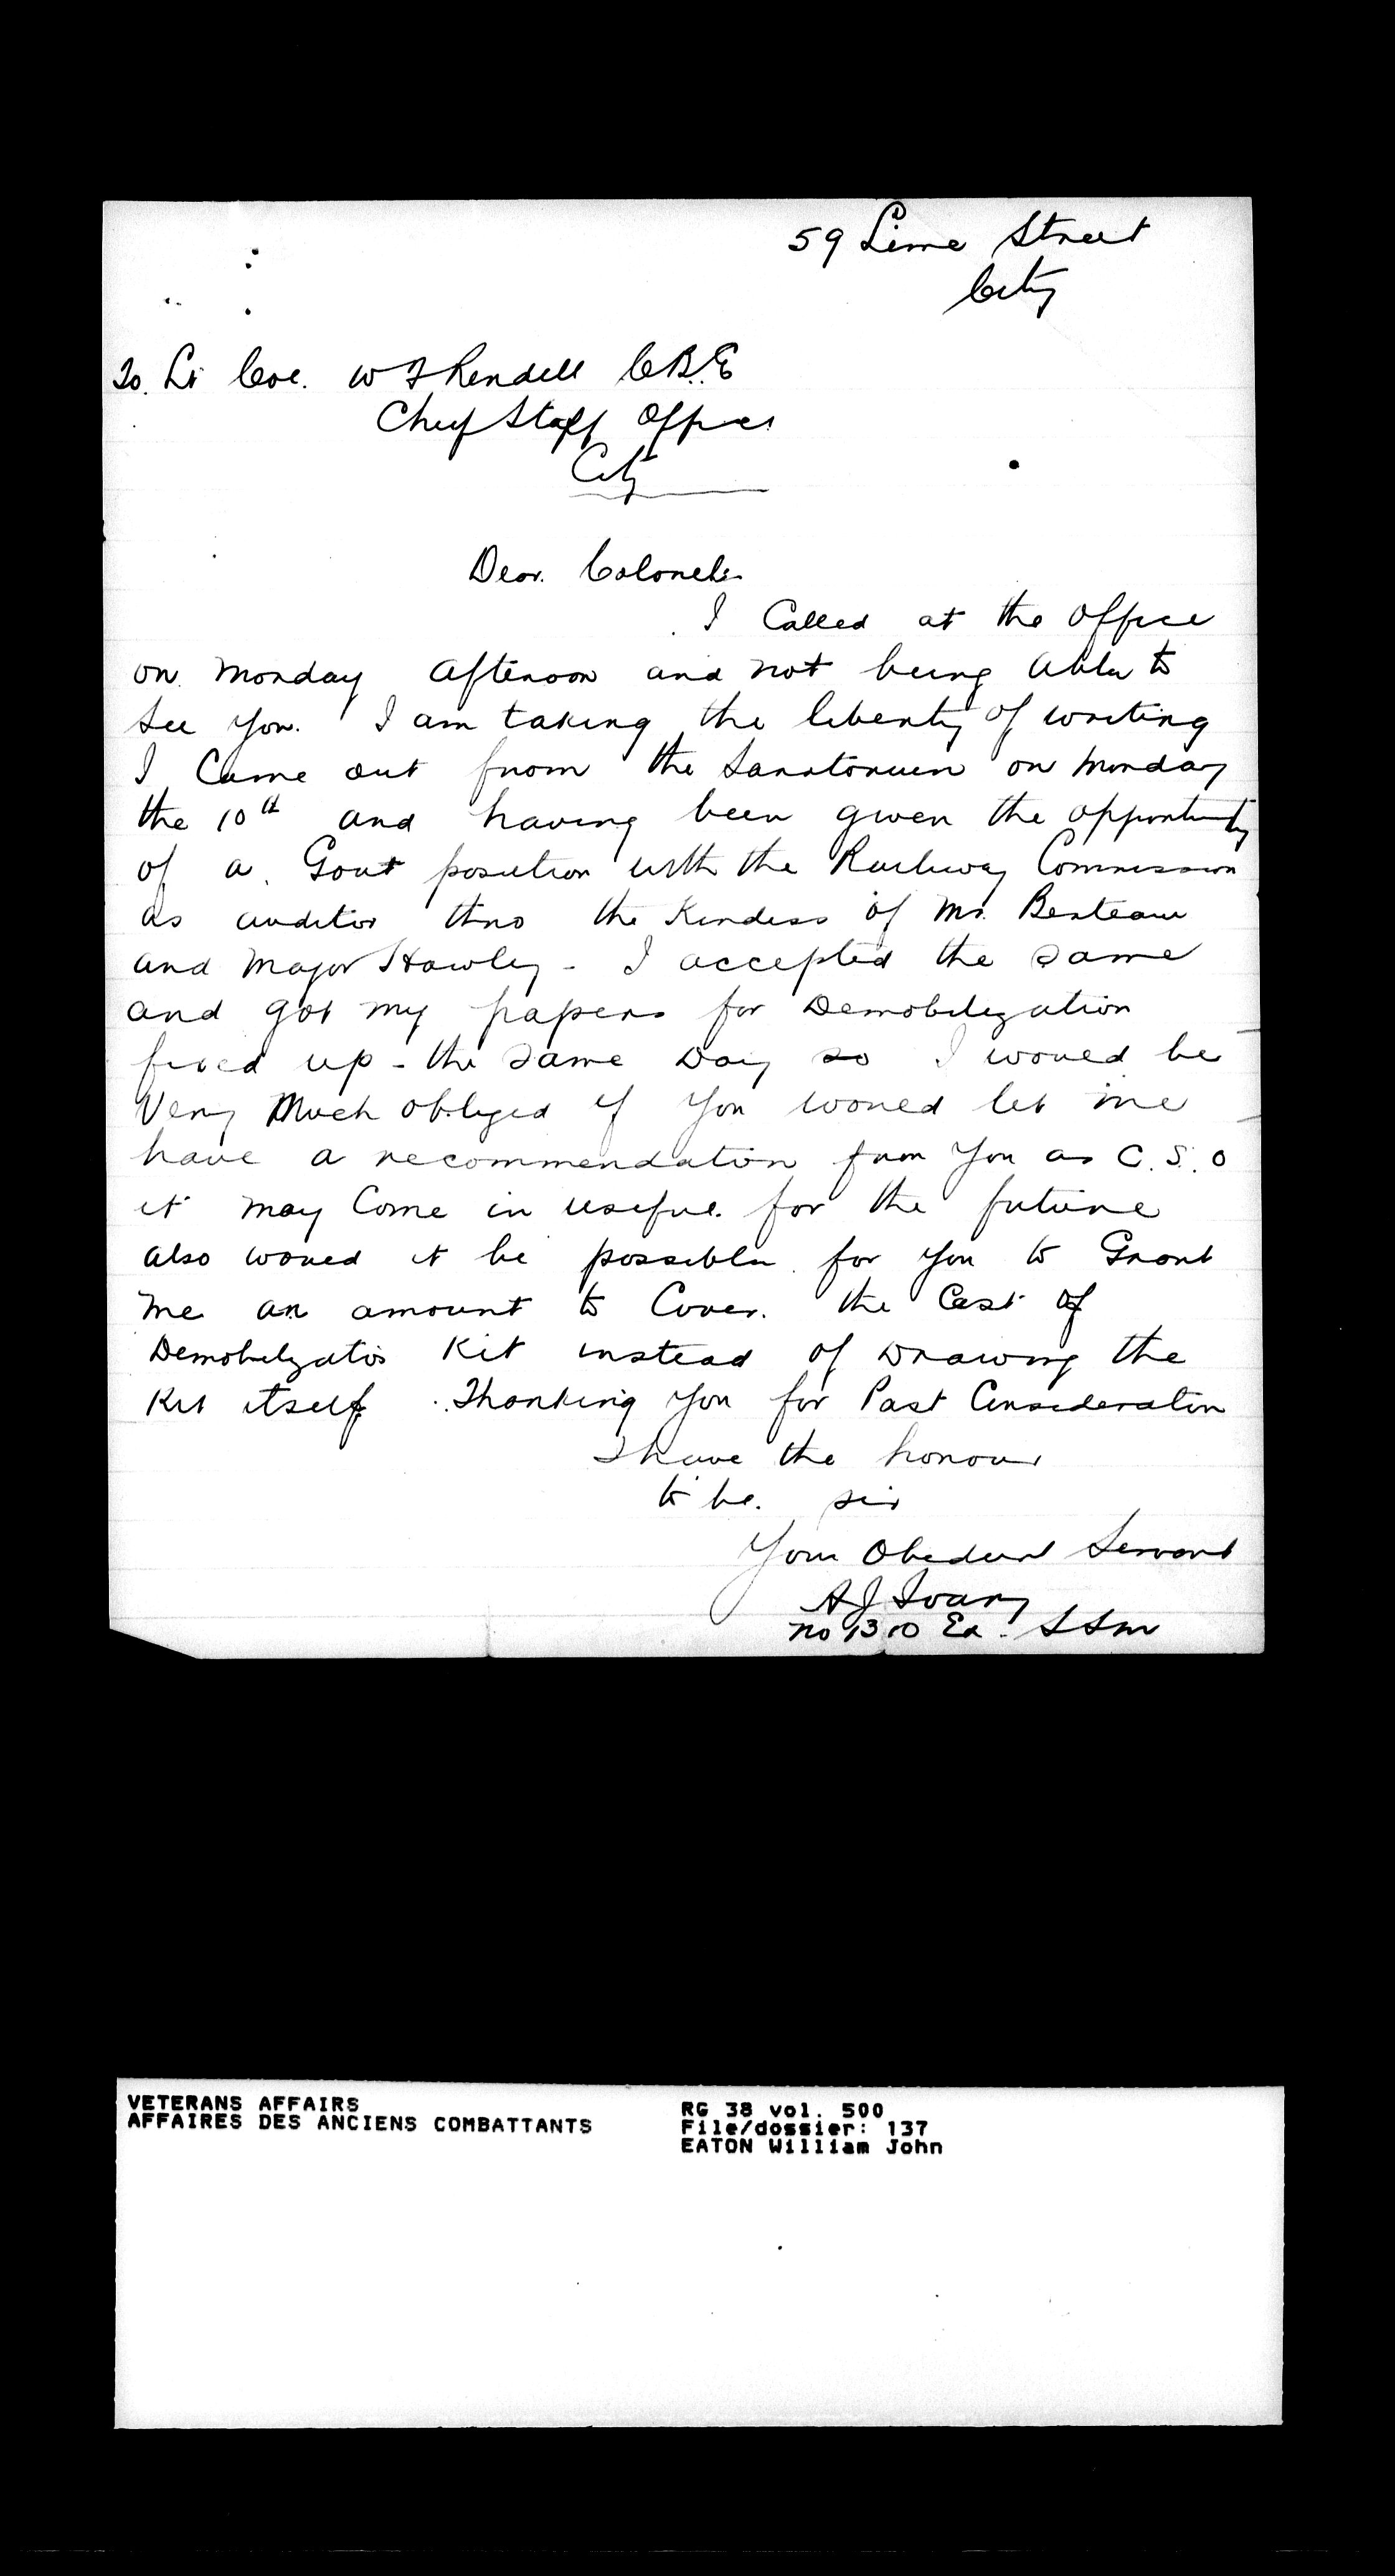 59 Lime Street
City
To. Lt Col. W F Rendell C.B.E
Chief Staff Officer
City
Dear. Colonel:-
I Called at the Office
on Monday Afternoon and not being Able to
See You. I am taking the liberty of writing
I Came out from the Sanatorium on Monday
the 10th and having been given the opportunity
of a Govt position with the Railway Commission
as auditor thro the Kindess of Mr. Berteau
and Major Howley - I accepted the same
and got my papers for Demobilization
fixed up - the same Day so I would be
Very Much obliged if You would let me
have a recommendation from You as C.S.O
it may Come in useful for the future
also would it be possible for You to Grant
me an amount to Cover. the Cost of
Demobilization Kit instead of Drawing the
Kit itself. Thanking You for Past Consideration
I have the honour
to be. sir
Your Obedient Servant
A J
No 1310 Ex. SSM
VETERANS AFFAIRS
AFFAIRES DES ANCIENS COMBATTANTS
RG 38 vol. 500
File/dossier: 137
EATON William John